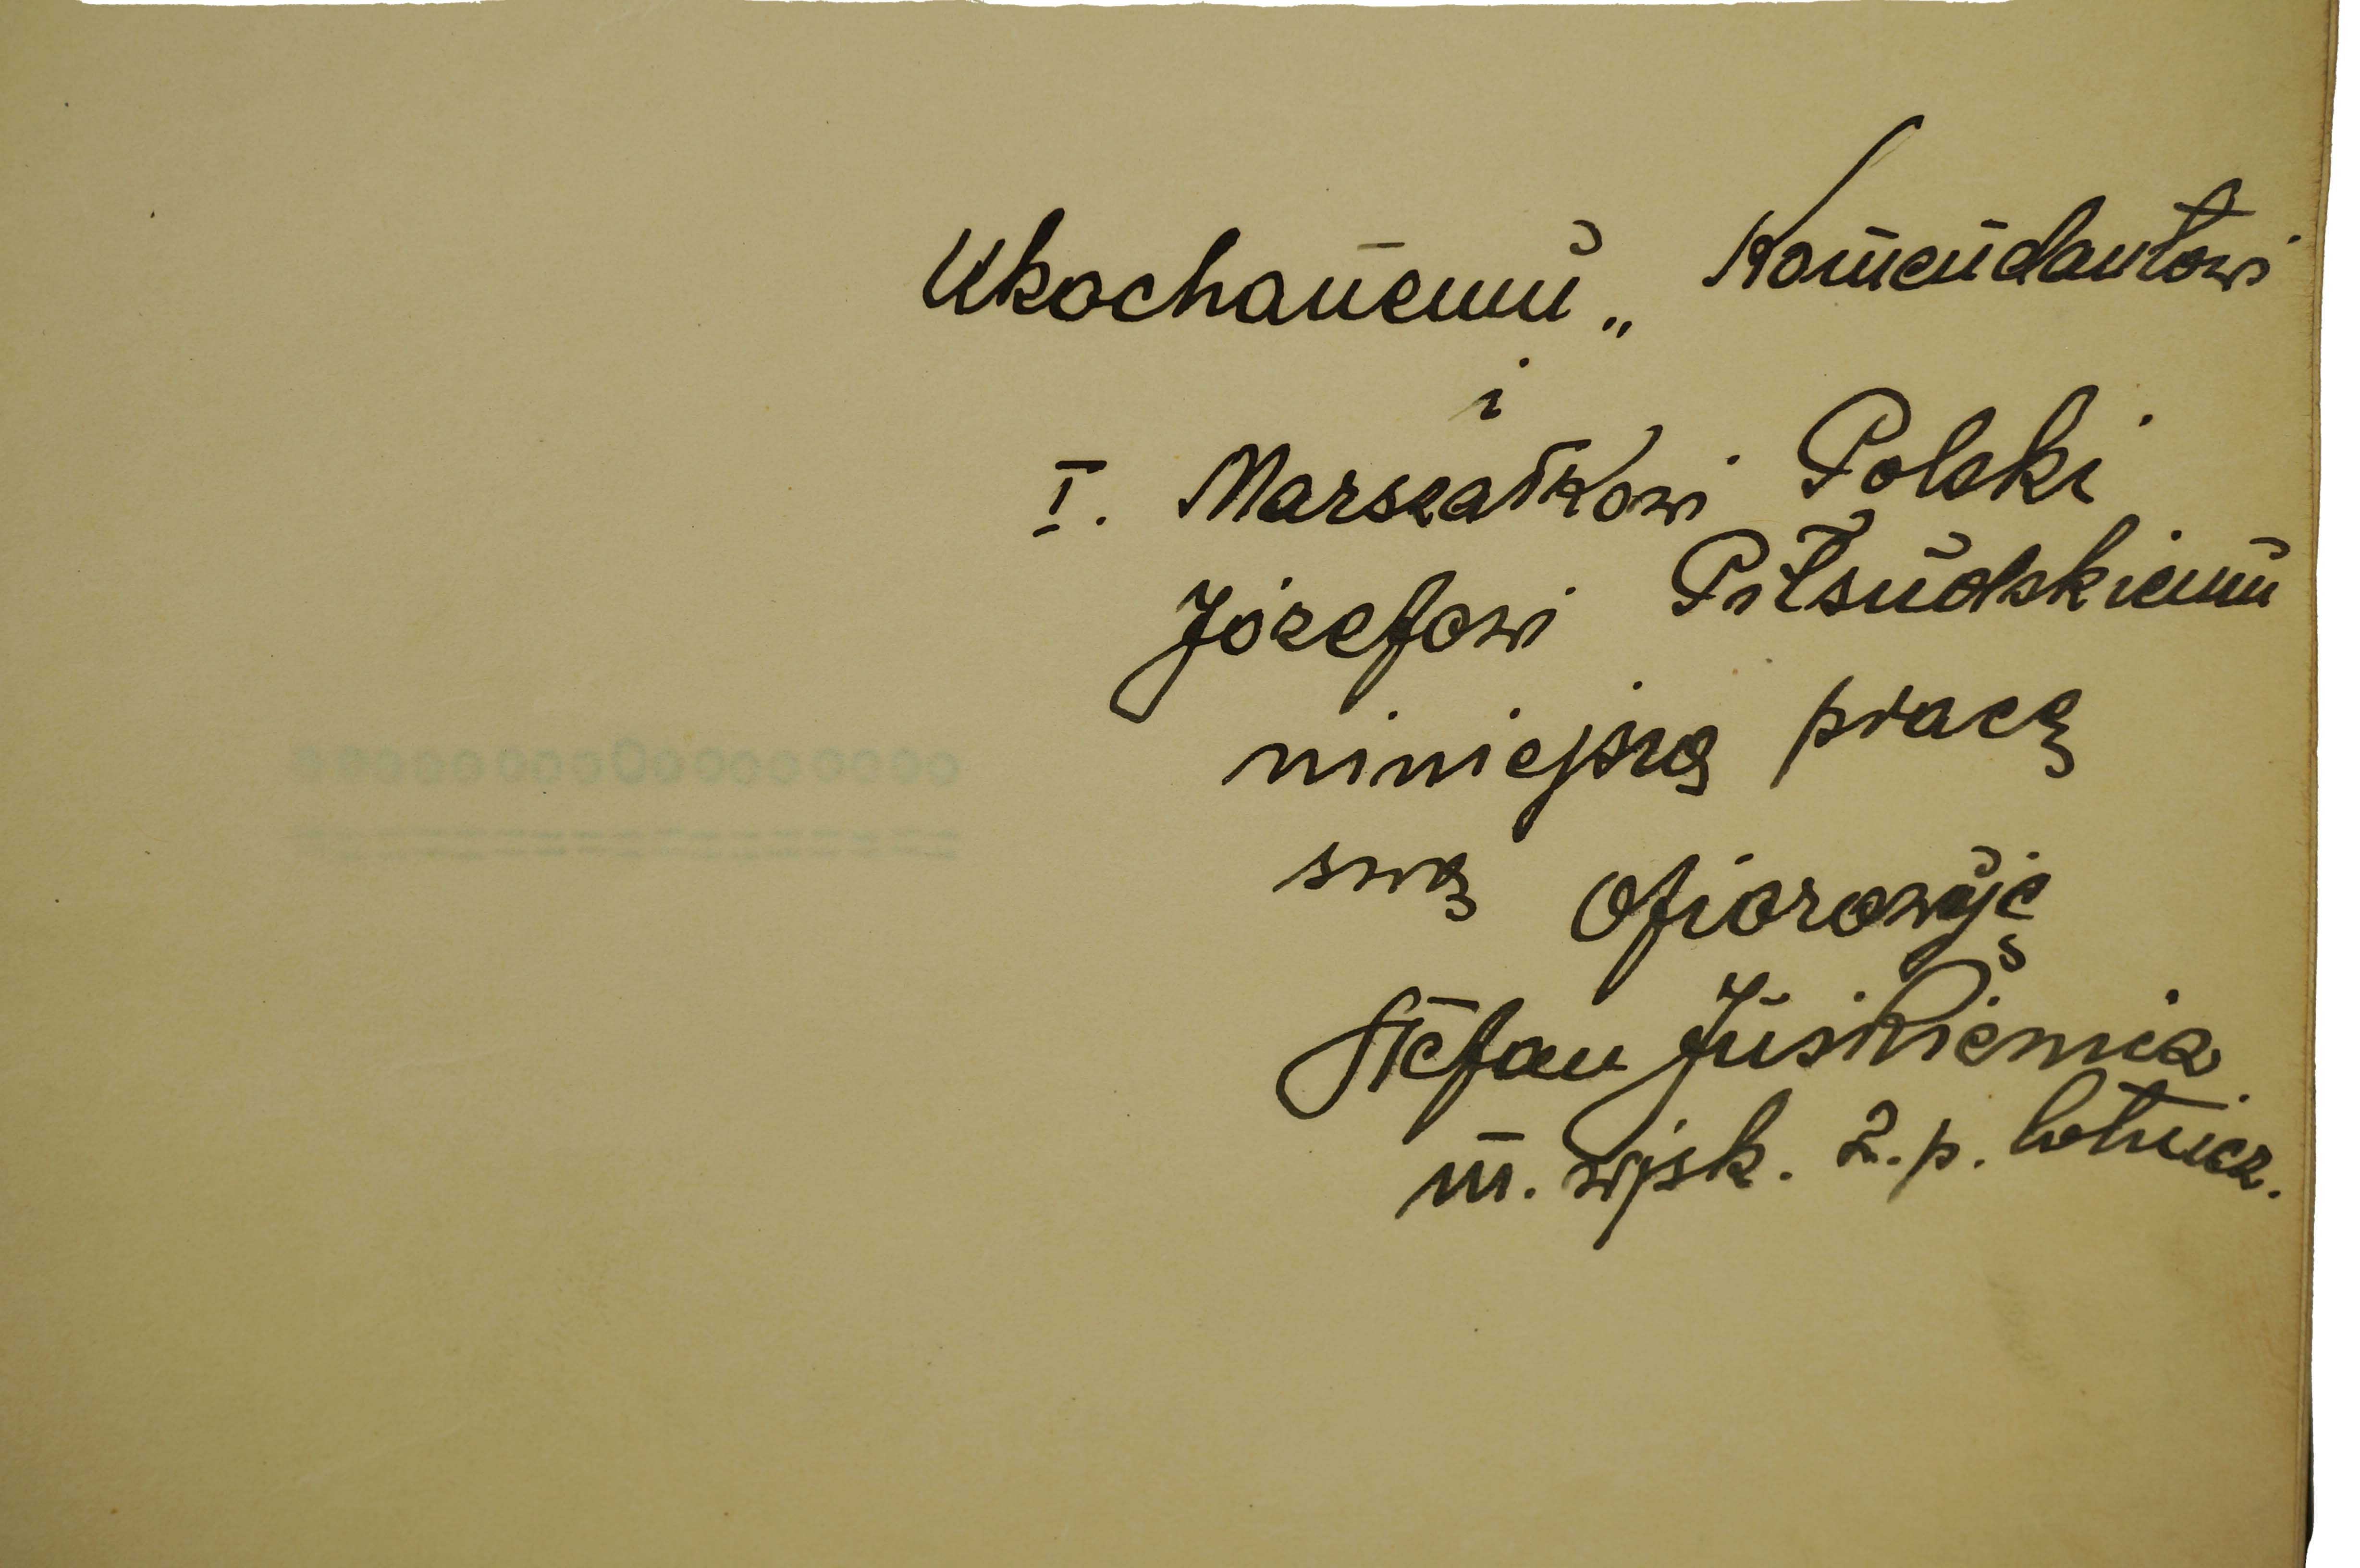 Ukochanemu „Komendantowi
i
I. Marszałkowi Polski
Józefowi Piłsudskiemu
niniejszą pracę
swą ofiarowuję
Stefan Juśkiewicz
m. wjsk. 2. p. lotnicz.